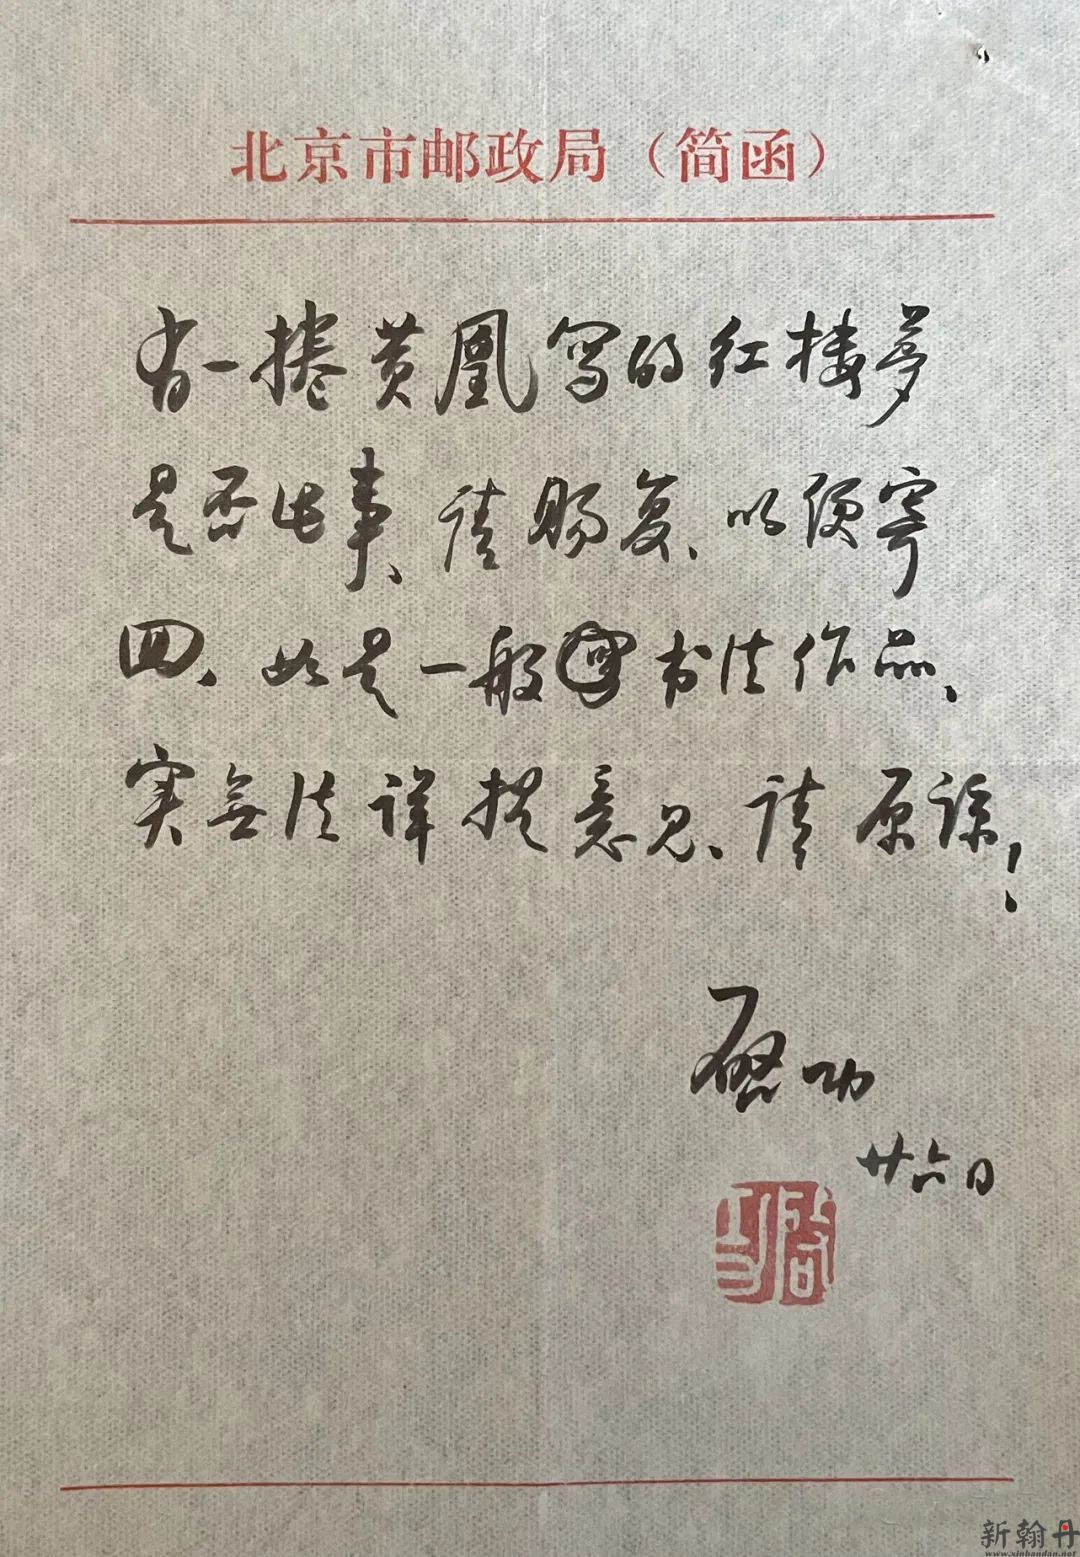 北京市邮政局（简函）
有一捲黄凰写的红楼梦
是否此事、请赐复、以便寄
回、如是一般书法作品、
实无法详提意见、请原谅！
启功
廿六日
启功
新翰丹
www.xinhandan.net